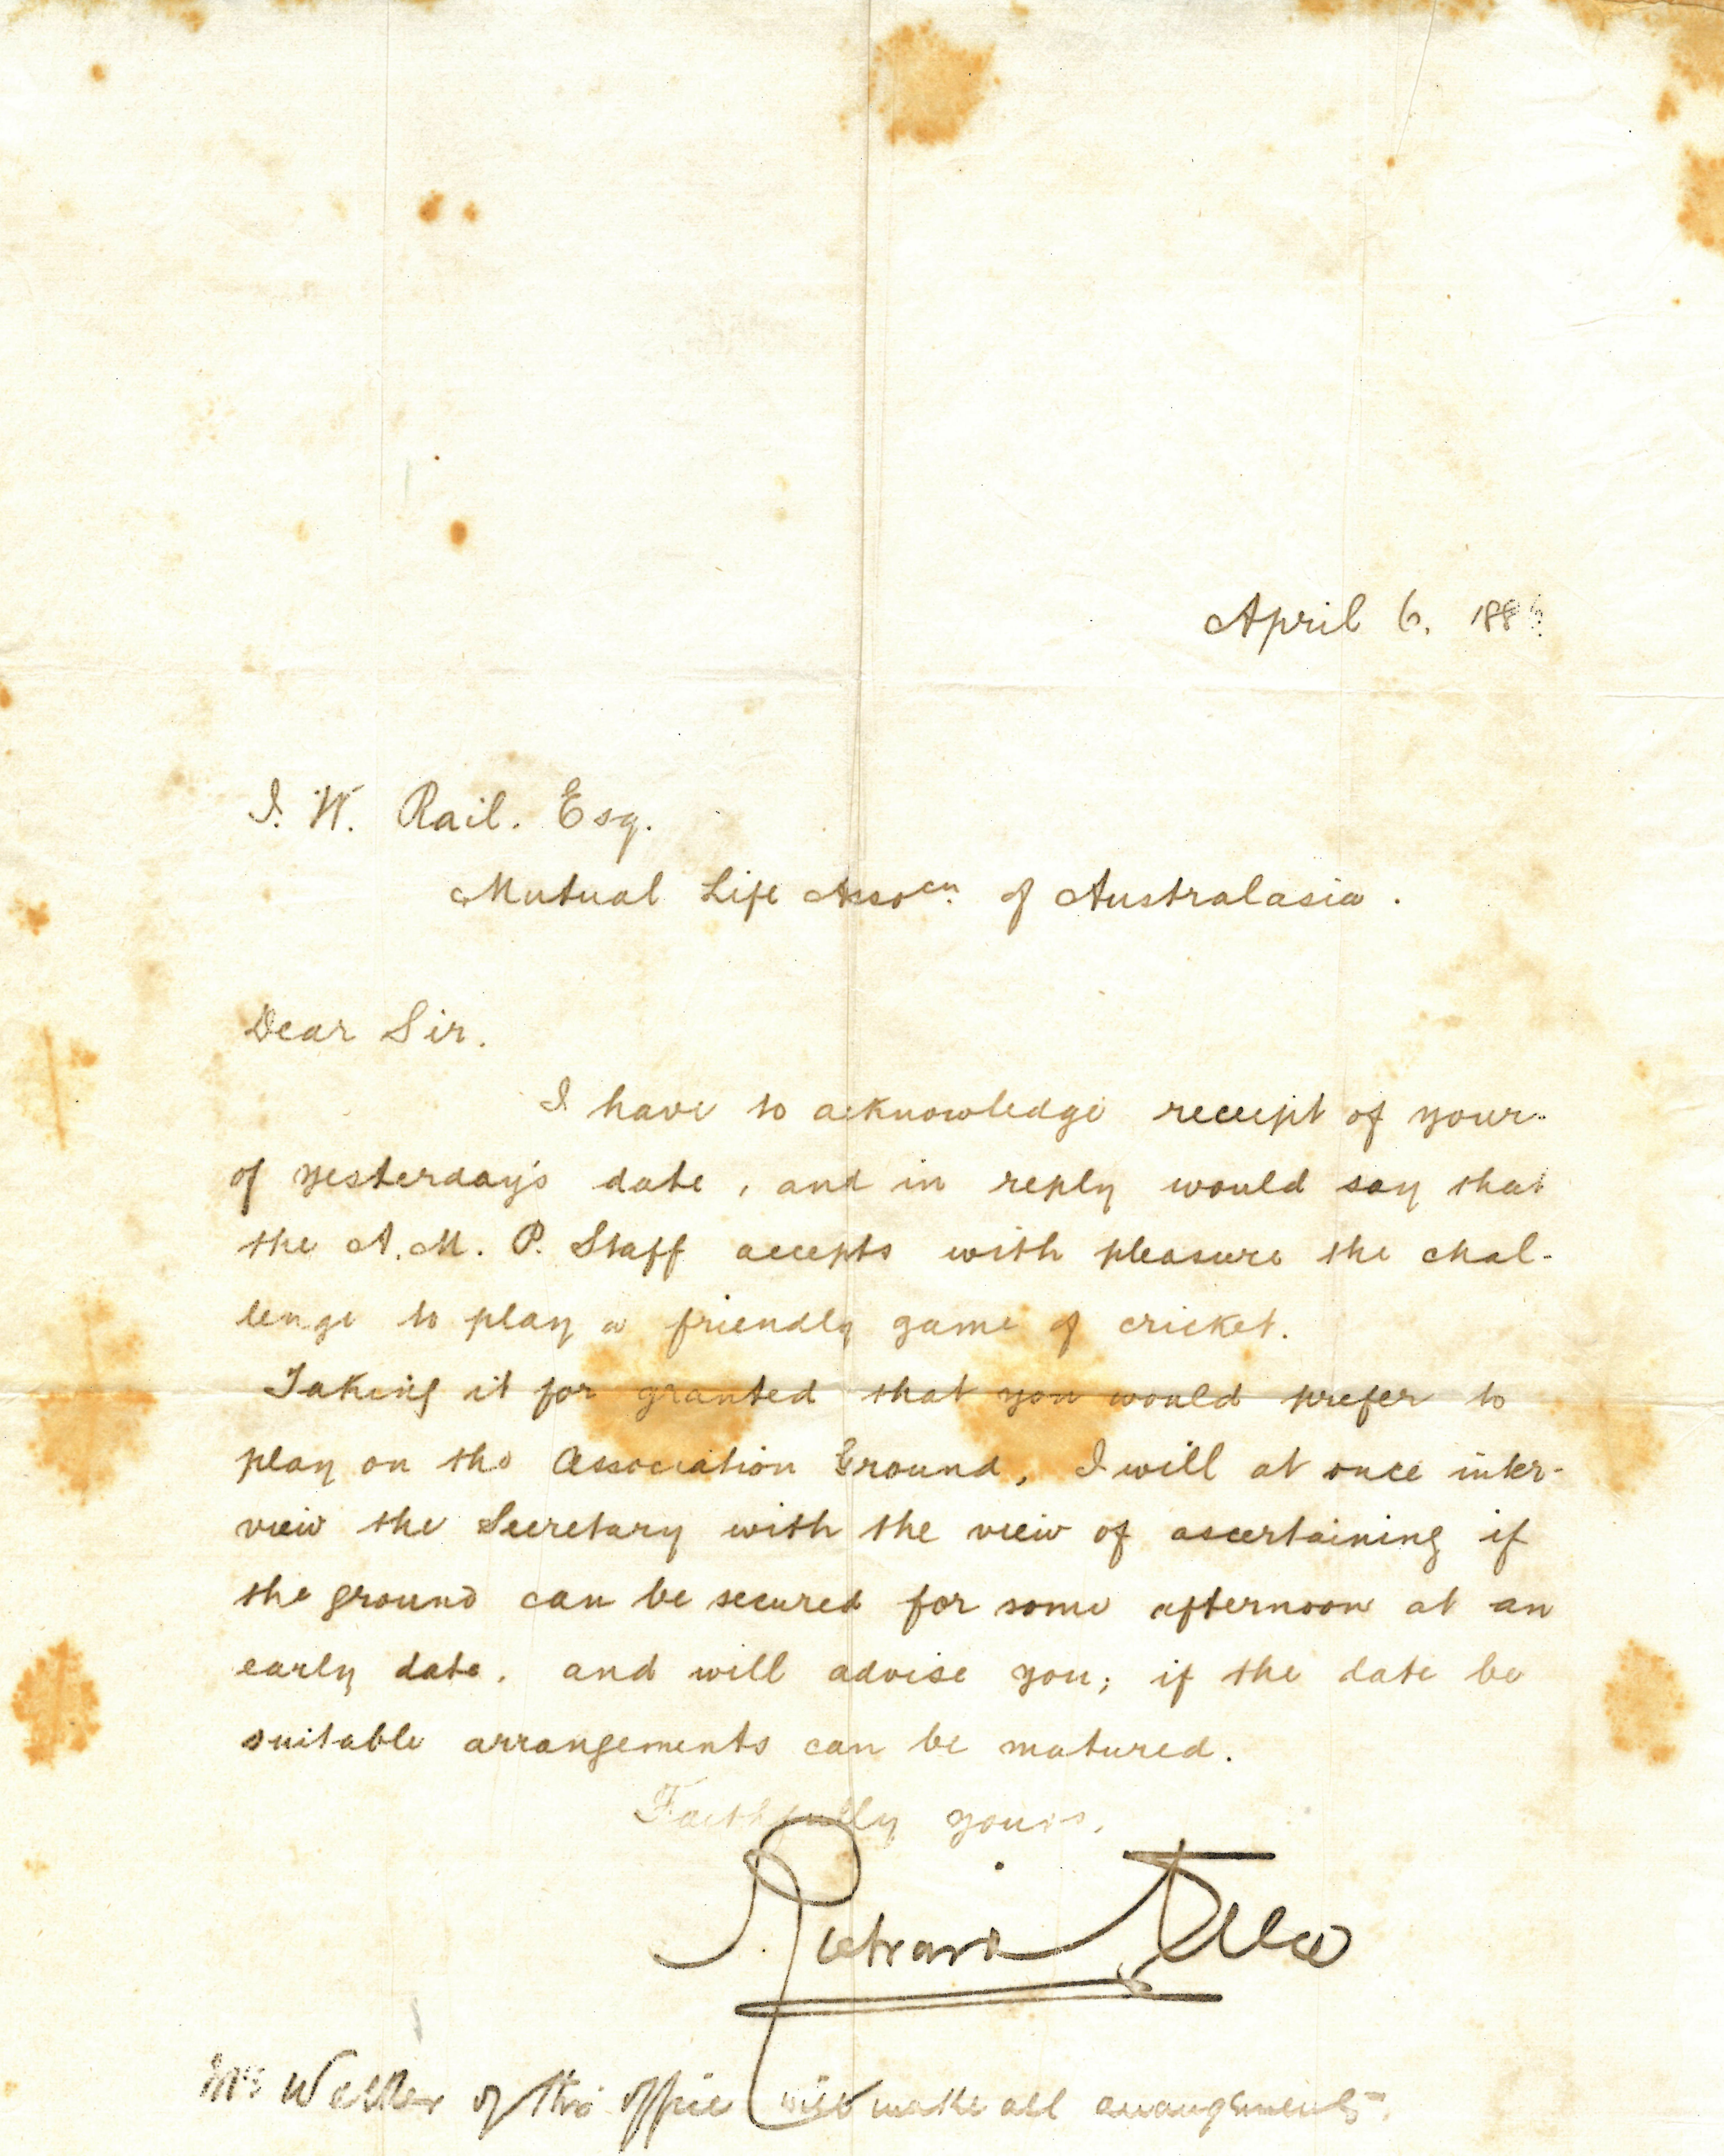 April 6. 188
J. W. Rail. Esq.
Mutual Life Assocn. of Australasia.
Dear Sir.
I have to acknowledge receipt of your
of yesterday's date, and in reply would say that
the A. M. P. Staff accepts with pleasure the chal-
lenge to play a friendly game of cricket.
Taking it for granted that you would prefer to
play on the Association Ground, I will at once inter-
view the Secretary with the view of ascertaining if
the ground can be secured for some afternoon at an
early date. and will advise you; if the date be
suitable arrangements can be matured.
Faithfully yours.
Richard Teece
of this office will make all arrangements.